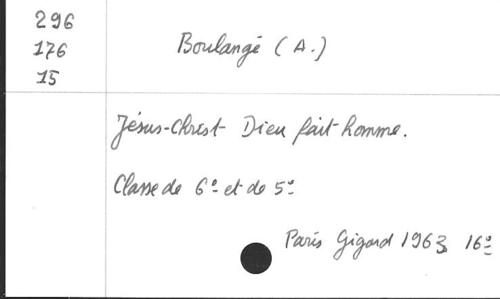 296
176
15
Boulangé (A.)
Jésus-Christ Dieu fait homme.
Classe de 6e et de 5e
Paris Gigord 1963 16o